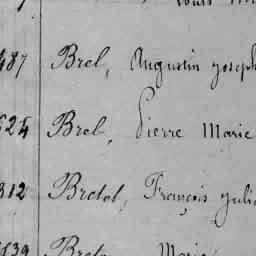 487 Brel, Augustin Joseph
524 Brel, Pierre Marie
312 Bretel, François Julie
639